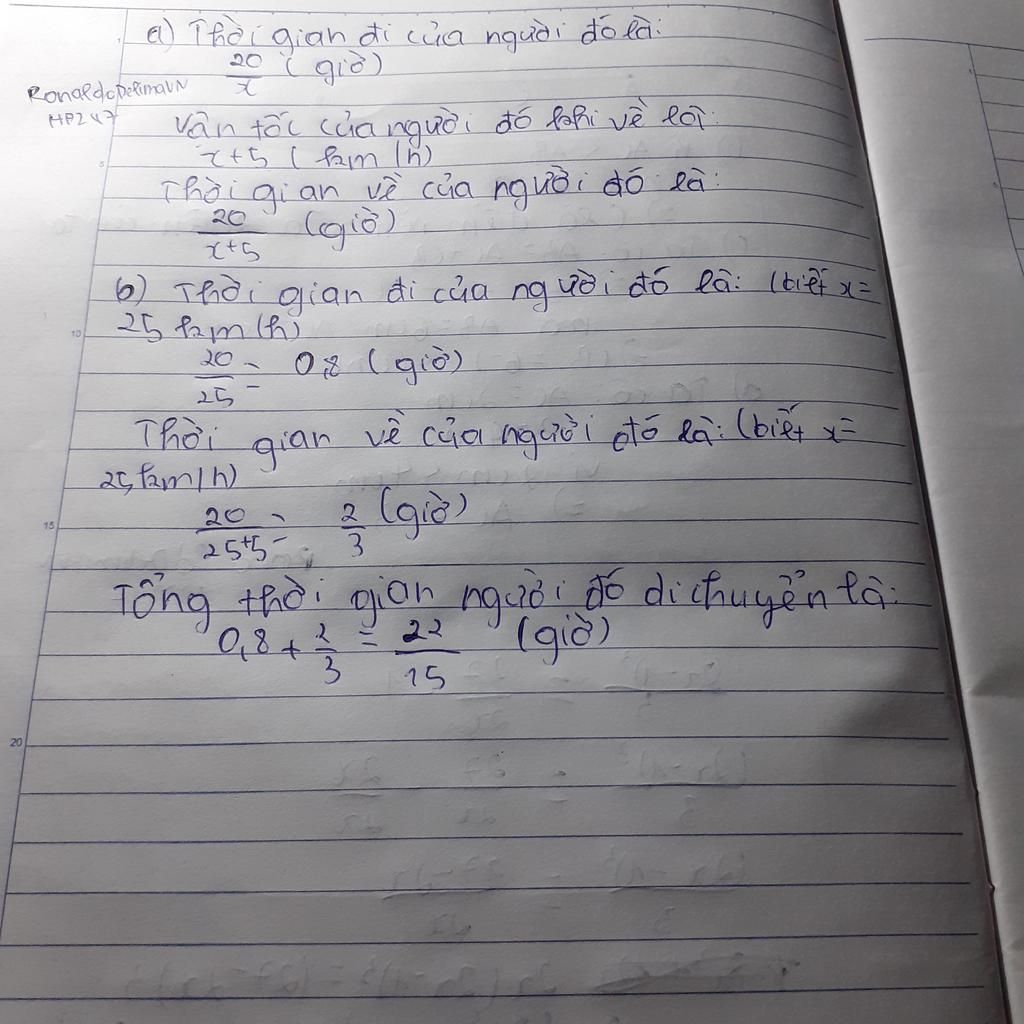 a) Thời gian đi của người đó là:
20/x (giờ)
RonaldodelimaVN
HP247
Vận tốc của người đó khi về là:
x+5 (km/h)
Thời gian về của người đó là:
20/(x+5) (giờ)
b) Thời gian đi của người đó là: (biết x=
25 km/h)
20/25 = 0,8 (giờ)
Thời gian về của người đó là: (biết x=
25 km/h)
20/(25+5) = 2/3 (giờ)
Tổng thời gian người đó di chuyển là:
0,8 + 2/3 = 22/15 (giờ)
5
10
15
20